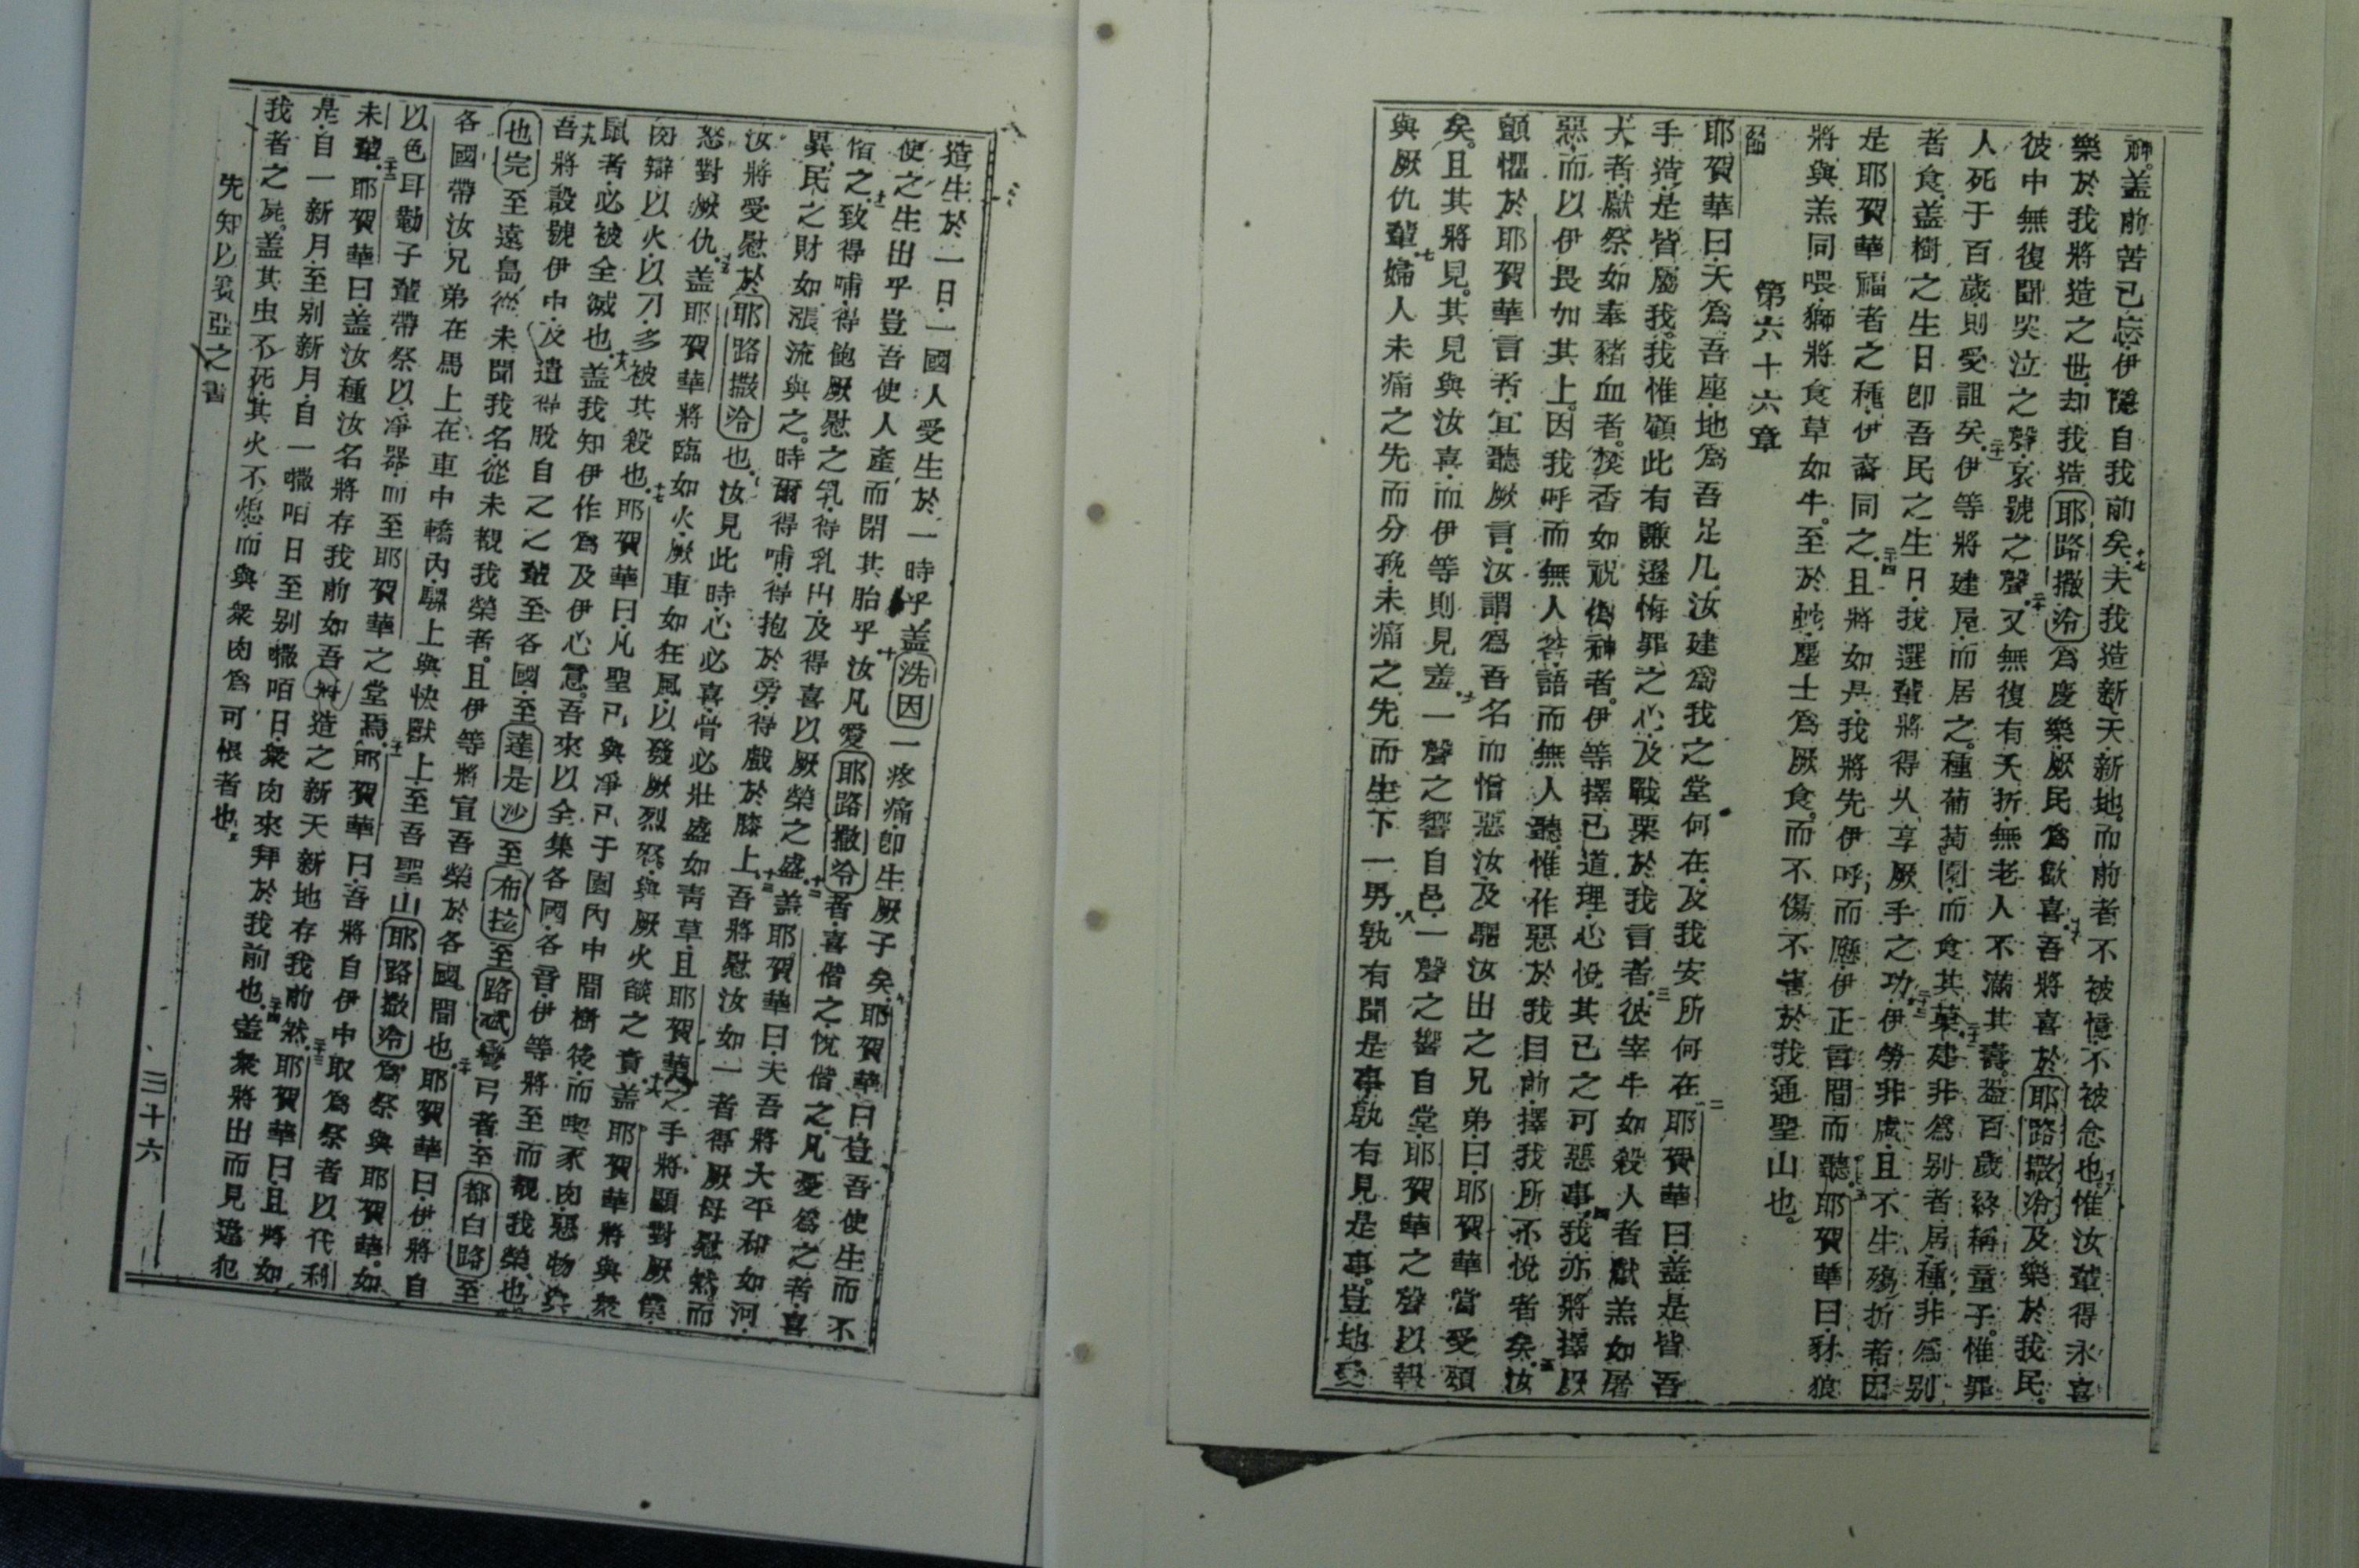 神蓋前苦已忘伊隱自我前矣十七夫我造新天新地而前者不被憶不被念也十八惟汝輩得永喜
樂於我將造之世却我造耶路撒冷爲慶樂厥民爲歡喜十九吾將喜於耶路撒冷及樂於我民
彼中無復聞哭泣之聲哀號之聲二十又無復有夭折無老人不滿其壽蓋百歲終稱童子惟罪
人死于百歲則受詛矣二十一伊等將建屋而居之種葡萄園而食其菓二十二建非爲別者居種非爲別
者食蓋樹之生日卽吾民之生日我選輩將得久享厥手之功二十三伊勞非虛且不生殤折者因
是耶賀華福者之種伊裔同之二十四且將如是我將先伊呼而應伊正言間而聽二十五耶賀華曰豺狼
將與羔同喂獅將食草如牛至於蛇塵土爲厥食而不傷不害於我通聖山也
第六十六章
耶賀華曰天爲吾座地爲吾足几汝建爲我之堂何在及我安所何在二耶賀華曰蓋是皆吾
手造是皆屬我我惟顧此有謙遜悔罪之心及戰栗於我言者三彼宰牛如殺人者獻羔如屠
犬者獻祭如奉豬血者焚香如祝偶神者伊等擇己道理心悅其己之可惡事四我亦將擇厥
惡而以伊畏加其上因我呼而無人答語而無人聽惟作惡於我目前擇我所不悅者矣五汝
顫懼於耶賀華言者宜聽厥言汝謂爲吾名而憎惡汝及驅汝出之兄弟曰耶賀華當受頌
矣且其將見其見與汝喜而伊等則見羞六一聲之響自邑一聲之響自堂耶賀華之聲以報
與厥仇輩七婦人未痛之先而分娩未痛之先而生下一男八孰有聞是事孰有見是事豈地受
造生於一日一國人受生於一時乎蓋洗因一疼痛卽生厥子矣九耶賀華曰豈吾使生而不
使之生出乎豈吾使人產而閉其胎乎十汝凡愛耶路撒冷者喜偕之悅偕之凡憂爲之者喜
偕之十一致得哺得飽厥慰之乳得乳出及得喜以厥榮之盛十二蓋耶賀華曰夫吾將大平和如河
異民之財如漲流與之時爾得哺得抱於旁得戲於膝上十三吾將慰汝如一者得厥母慰然而
汝將受慰於耶路撒冷也十四汝見此時心必喜骨必壯盛如靑草且耶賀華之手將顯對厥僕
怒對厥仇十五蓋耶賀華將臨如火厥車如狂風以發厥烈怒與厥火燄之責十六蓋耶賀華將與衆
肉辯以火以刀多被其殺也十七耶賀華曰凡聖己與凈己于園內中間樹後而喫豕肉惡物與
鼠者必被全滅也十八蓋我知伊作爲及伊心意吾來以全集各國各音伊等將至而觀我榮也
十九吾將設號伊中及遺得脫自之之輩至各國至達是沙至布拉至路忒彎弓者至都白路至
也完至遠島從未聞我名從未觀我榮者且伊等將宣吾榮於各國間也二十耶賀華曰伊將自
各國帶汝兄弟在馬上在車中轎內騾上與快獸上至吾聖山耶路撒冷爲祭與耶賀華如
以色耳勒子輩帶祭以凈器而至耶賀華之堂焉二十一耶賀華曰吾將自伊中取爲祭者以代利
未輩二十二耶賀華曰蓋汝種汝名將存我前如吾將造之新天新地存我前然二十三耶賀華曰且將如
是自一新月至別新月自一嘥咟日至別嘥咟日衆肉來拜於我前也二十四蓋衆將出而見違犯
我者之屍蓋其虫不死其火不熄而與衆肉爲可恨者也
先知以賽亞之書
三十六